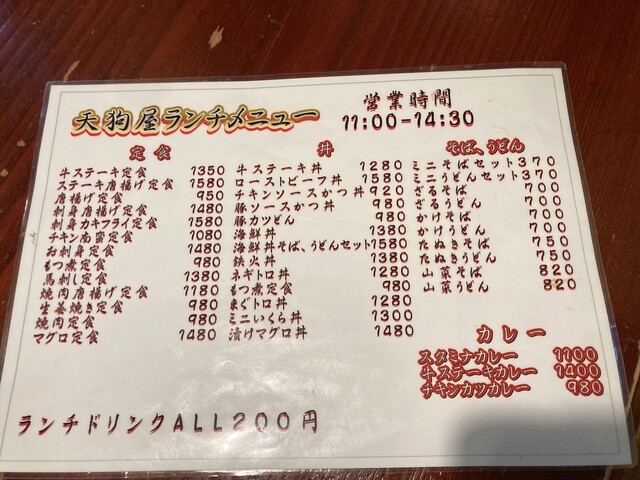 天狗屋ランチメニュー
営業時間
11:00-14:30
定食
牛ステーキ定食 1350
ステーキ唐揚げ定食 1580
唐揚げ定食 950
刺身唐揚げ定食 1480
刺身カキフライ定食 1580
チキン南蛮定食 1080
お刺身定食 1480
もつ煮定食 980
馬刺し定食 1380
焼肉唐揚げ定食 1180
生姜焼き定食 980
焼肉定食 980
マグロ定食 1480
丼
牛ステーキ丼 1280
ローストビーフ丼 1580
チキンソースかつ丼 920
豚ソースかつ丼 980
豚カツどん 980
海鮮丼 1380
海鮮丼そば、うどんセット1580
鉄火丼 1380
ネギトロ丼 1280
もつ煮定食 980
まぐトロ丼 1280
ミニいくら丼 1300
漬けマグロ丼 1480
そば、うどん
ミニそばセット370
ミニうどんセット370
ざるそば 700
ざるうどん 700
かけそば 700
かけうどん 700
たぬきそば 750
たぬきうどん 750
山菜そば 820
山菜うどん 820
カレー
スタミナカレー 1100
牛ステーキカレー 1400
チキンカツカレー 980
ランチドリンクALL200円